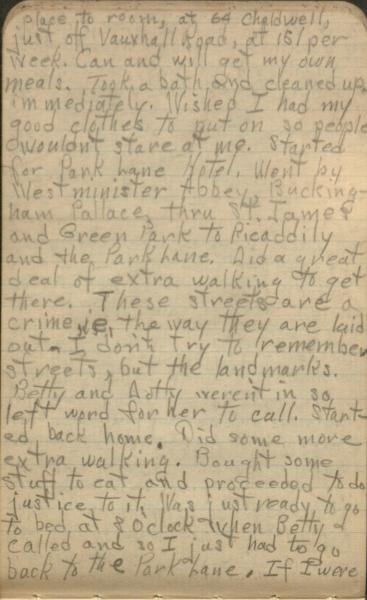 place to room, at 64 Chaldwell,
just off Vauxhall Road, at 15/ per
week. Can and will get my own
meals. Took a bath and cleaned up
immediately. Wished I had my
good clothes to put on so people
wouldnt stare at me. Started
for Park Lane Hotel. Went by
Westminister Abbey, Bucking-
ham Pallace, thru St. James
and Green Park to Picaddily
and the Park Lane. Did a great
deal of extra walking to get
there. These streets are a
crime, the way they are laid
out. I don't try to remember
streets, but the landmarks.
Betty and Dotty weren't in so
left word for her to call. Start-
ed back home. Did some more
extra walking. Bought some
stuff to eat and proceeded to do
justice to it. Was just ready to go
to bed at 8 Oclock when Betty
called and so I just had to go
back to the Park Lane. If I were